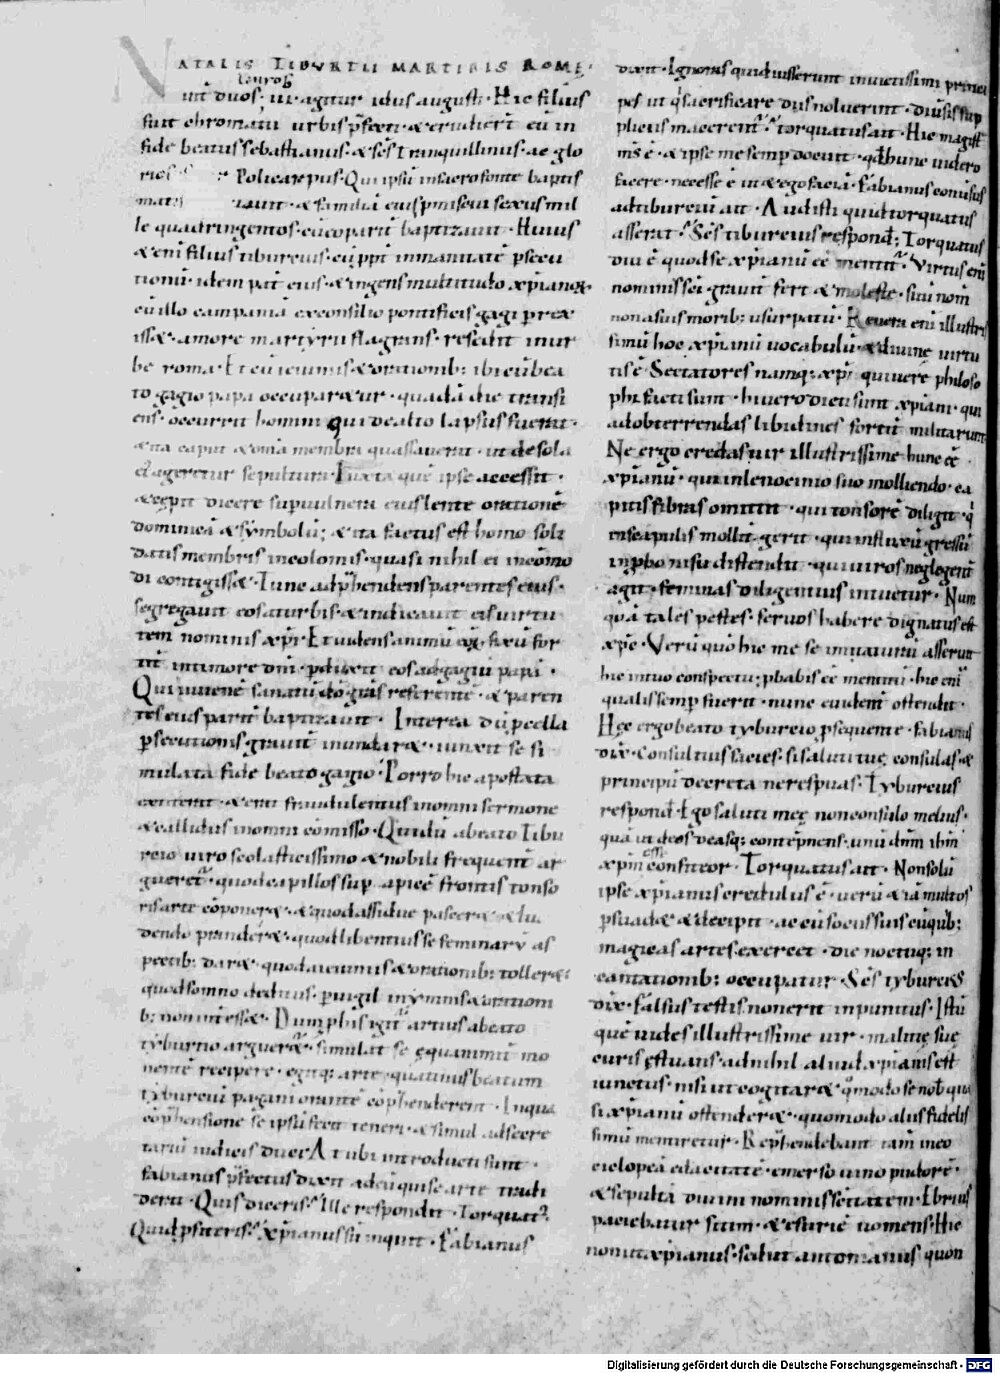 NATALIS TIBVRTII MARTIRIS ROME·
lauros
int duos; ui· agitur idus augusti· Hic filius
fuit chromatii urbis p̄fecti· & erudier̄t eū in
fide beatus sebastianus· & sc̄s tranquillinus· ac glo
Policarpus· Qui ipsū in sacro fonte baptiz
& familiā eius p̄mi seui sexus mil
le quadringentos· eū coparit̄ baptizauit· Huius
& eni filius tiburcius· cū pp̄t inmanitatē p̄secu
tionū· idem pat̄ eius· & ingens multitudo xp̄ianoꝝ
eū illo campaniā ex consilio pontificis gagi p̄rex
iss&· amore martyrii flagrans· resedit in ur
be roma· Et eū ieiuniis & orationib; ibi eū bea
to gagio papa occupar&ur· quadā die transi
ens· occurrit homini qui de alto lapsus fuerat·
& ita caput & om̄ia membra quassauerat· ut de sola
ei ager&ur sepultura· Iuxta quē ipse accessit·
& cępit dicere sup uulnera eius lente orationē
dominicā & sȳmbolū; & ita factus est homo soli
datis membris incolomis· quasi nihil ei incōmo
di contigiss&· Tunc adp̄hendens parentes eius·
segregauit eos a turbis· & indicauit eis uirtu
tem nominis xp̄i· Et uidens animū eoꝝ fixū for
tit̄ in timore dn̄i· p̄duxit eos ad gagiū papā·
Qui iuuenē sanatū dō grās referentē· & paren
tes eius parit̄ baptizauit· Interea dū p̄cella
p̄secutionis grauit̄ inundar&· iunxit se si
mulata fide beato gagio· Porro hic apostata
extiterit· & erat fraudulentus in omni sermone
& callidus in omni cōmisso· Qui dū a beato Tibu
rcio uiro scolasticissimo & nobili frequent̄ ar
gueret̄· quod capillos sup apicē frontis tonso
ris arte cōponer&· & quod assidue pascer& & lu
dendo prander&· quod libentius se feminarū as
pectib; dar&· quod a ieiuniis & orationib; toller&·
quod somno deditus· p̄uigil in ymnis & oration
b; non int̄ess&· Dum p̄ his igit̄ artius a beato
tyburtio arguer&̄· simulat se ęquanimit̄ mo
nentē recipere· egitq; arte· quatinus beatum
tyburciū pagani orantē cōp̄henderent· In qua
cōp̄hensione se ipsū fecit teneri· & simul ad secre
tariū iudicis duci· At ubi introducti sunt·
fabianus p̄fectus dixit ad eū qui se arte tradi
derit· Quis diceris? Ille respondit· Torquat᷒·
Quid p̄fiteris? Xp̄ianus sū inquit· Fabianus
dixit· Ignoras quid iusserunt inuictissimi princi
pes ut q̄ sacrificare diis noluerint· diūsis sup
pliciis macerent̄? Torquatus ait· Hic magist̄
ms̄ ē· & ipse me semp̄ docuit· qd̄ hunc uidero
facere· necesse ē ut & ego faciā· Fabianus conuersus
ad tiburciū ait· Audisti quid torquatus
asserat? Sc̄s tiburcius respond̄; Torquatus
diu ē quod se xp̄ianū eē mentit̄· Virtus eni
nominis sc̄i grauit̄ fert & moleste· sui nom̄
non a suis morib; usurpatū· Reuera eni illustris
simū hoc xp̄ianū uocabulū· & diuinę uirtu
tis ē· Sectatores namq; xp̄i qui uere philoso
phi facti sunt· hi uero dicti sunt xp̄iani· qui
ad obterrendas libidines fortit̄ militarunt
Ne ergo credas uir illustrissime hunc eē
xp̄ianū· qui in lenocinio suo molliendo· ca
pitis fibras omittit· qui tonsorē diligit· q̄
in scapulis mollit̄ gerit· qui in fluxū gressū
inp̄bo nisu distendit· qui uiros neglegent̄
agit· feminas diligentius intuetur· Num
quā tales pestes· seruos habere dignatus est
xp̄c· Verū quo hic me se imitatū asserit
hic in tuo conspectu; p̄babis eē mentitū· hic eni
qualis semp̄ fuerit· nunc euident̄ ostendit·
Hęc ergo beato tyburcio p̄sequente· fabianus
dix̄· Consultius facies· si saluti tuę consulas· &
principū decreta ne respuas· Tyburcius
respond̄· Ego saluti meę non consulo melius·
quā ut deos deasq; contēpnens· unū dn̄m ihm̄
xp̄m confiteor· Torquatus ait· Non solū
ipse xp̄ianus credulus ē· uerū & iā multos
p̄suad& & decipit· ac cū sociis suis cū quib;
magicas artes exercet· die noctuq; in
cantationib; occupatur· Sc̄s tyburcius
dix̄· Falsus testis non erit inpunitus· Istū
quē uides illustrissime uir· malitię suę
curis ęstuans· ad nihil aliud xp̄ianis est
iunctus· nisi ut cogitar& q̄modo se nob̄ qua
si xp̄ianū ostender&· quomodo alus fidelis
simū mentiretur· Rep̄hendebant tam in eo
ciclopeā edacitatē· emerso uino pudorē·
& sepultā diuini nominis sc̄itatem· Ebrius
paciebatur sitim· & esuriē uomens· Hic
non ut xp̄ianus· sed ut antomanus quon
Digitalisierung gefördert durch die Deutsche Forschungsgemeinschaft - DFG